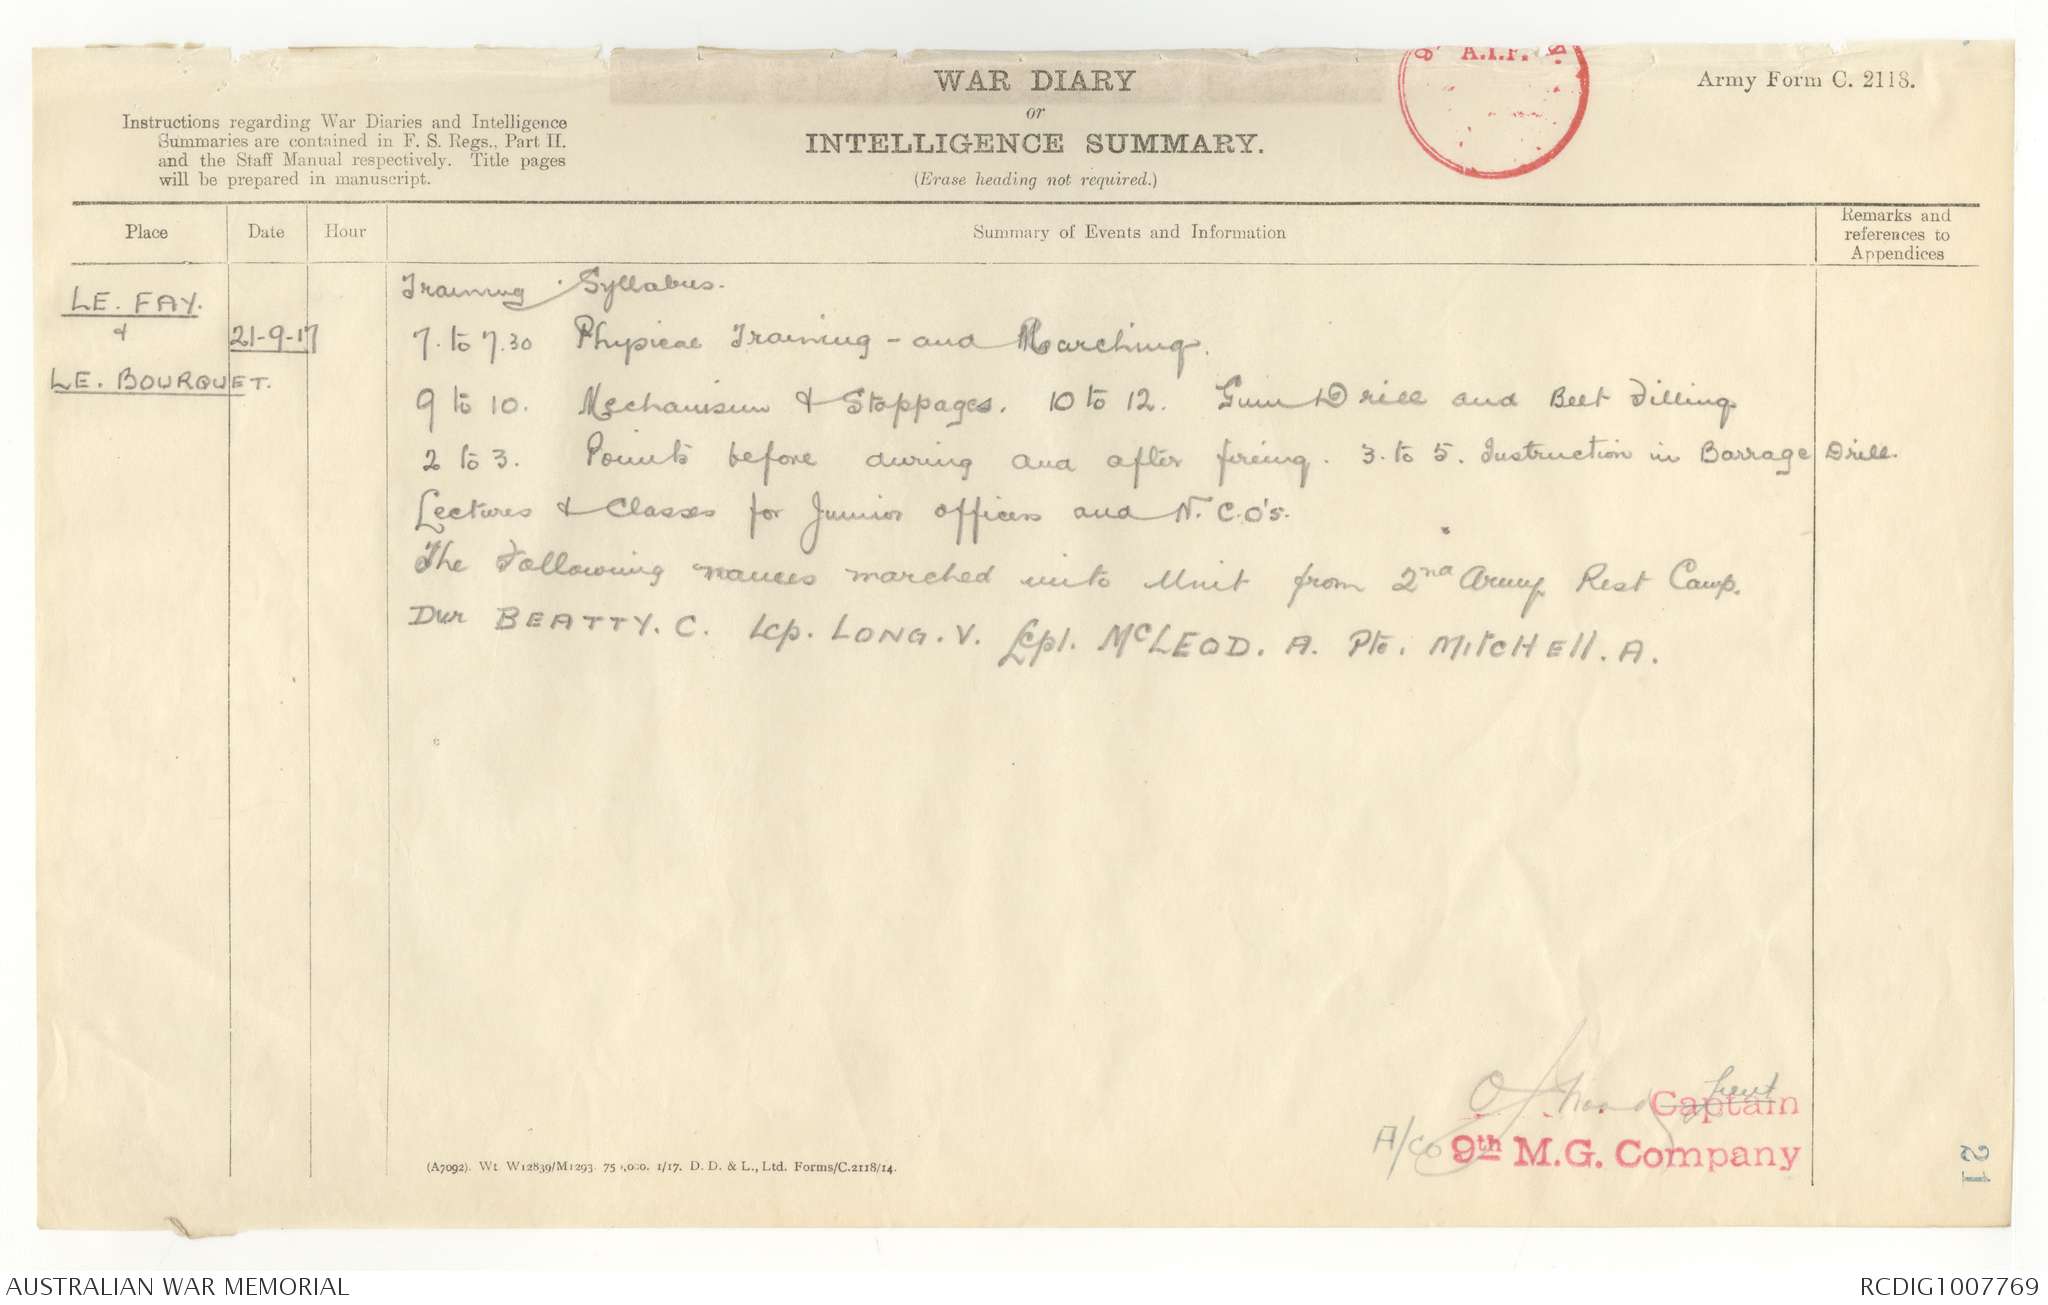 WAR DIARY
or
INTELLIGENCE SUMMARY.
(Erase heading not required.)
Army Form C. 2118.
A.I.F.
Instructions regarding War Diaries and Intelligence
Summaries are contained in F. S. Regs., Part II.
and the Staff Manual respectively. Title pages
will be prepared in manuscript.
Place Date Hour Summary of Events and Information Remarks and references to Appendices
LE. FAY.
&
LE. BOURQUET.
21-9-17
Training Syllabus.
7. to 7.30 Physical Training - and Marching.
9 to 10. Mechanism & Stoppages. 10 to 12. Gun Drill and Belt Filling
2 to 3. Points before during and after firing. 3. to 5. Instruction in Barrage Drill.
Lectures & Classes for Junior officers and N.C.O's.
The Following names marched into Unit from 2nd Army Rest Camp.
Dvr BEATTY. C. Lcp. LONG. V. Lcpl. McLEOD. A. Pte. MITCHEll. A.
Lieut
Captain
A/CO 9th M.G. Company
(A7092). Wt. W12839/M1293. 75 ,000. 1/17. D. D. & L., Ltd. Forms/C.2118/14.
21
AUSTRALIAN WAR MEMORIAL
RCDIG1007769